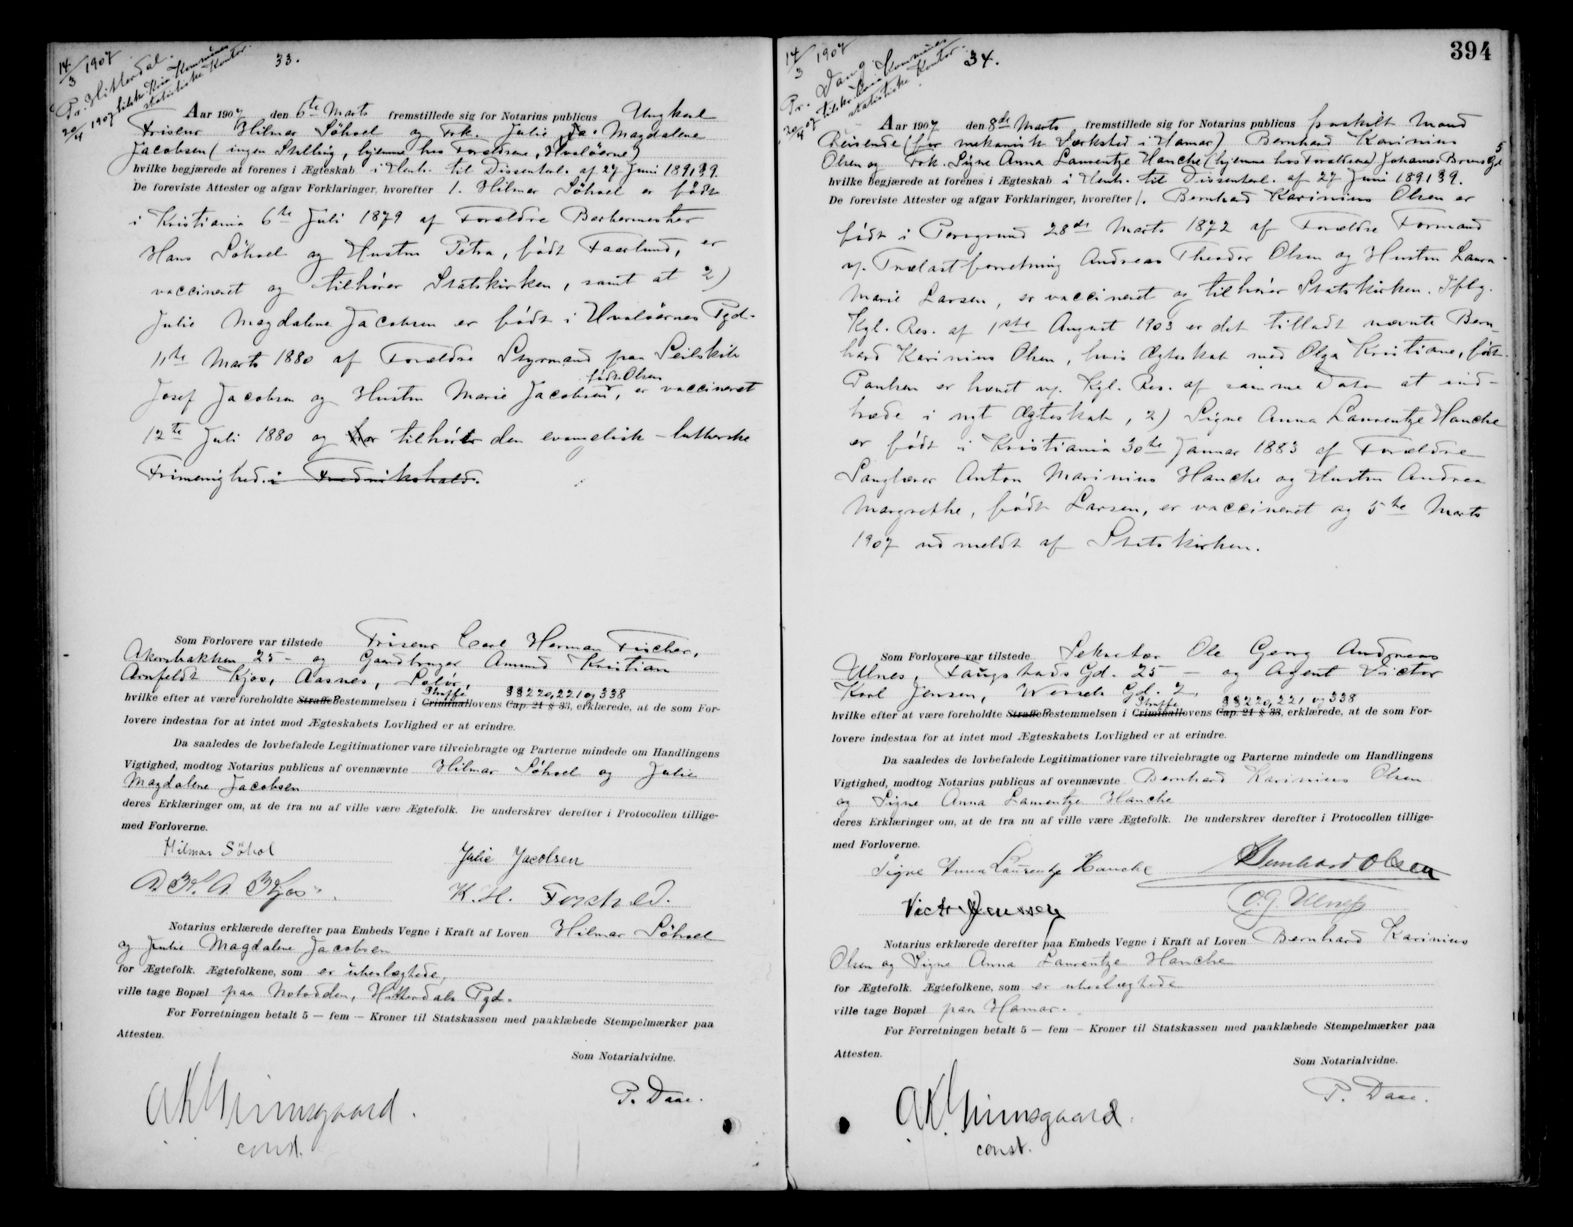 14/3 1907
Pr. Hitterdal.
20/4 1907 tilskr. Kria Kommunes
statistiske Kontor.
33.
Aar 1907 den 6te Marts fremstillede sig for Notarius publicus Ungkarl
Frisenr Hilmar Söhoel og Frk. Julie Magdalene
Jacobsen (ingen Stilling, hjemme hos Forældrene, Hvaløerne)
hvilke begjærede at forenes i Ægteskab i Henh. til Dissenterl. af 27 Juni 1891 § 9.
De foreviste Attester og afgav Forklaringer, hvorefter 1. Hilmar Söhoel er født
i Kristiania 6te Juli 1879 af Forældre Barbermester
Hans Söhoel og Hustru Petra, født Faaslund, er
vaccineret og tilhører Statskirken, samt at 2)
Julie Magdalene Jacobsen er født i Hvaløernes Pgd.
11te Marts 1880 af Forældre Styrmand paa Seilskib
Josef Jacobsen og Hustru Marie Jacobsen, født Olsen, er vaccineret
12te Juli 1880 og har tilhører den evangelisk-lutherske
Frimenighed i Fredrikshald.
Som Forlovere var tilstede Frisenr Carl Herman Fischer,
Akersbakken 25 - og Gaardbruger Amund Kristian
Arnfeldt Kjos, Aasnes, Solør,
Straffe §§ 220, 221 og 338
hvilke efter at være foreholdte StraffeBestemmelsen i Criminallovens Cap. 21 § 33, erklærede, at de som For-
lovere indestaa for at intet mod Ægteskabets Lovlighed er at erindre.
Da saaledes de lovbefalede Legitimationer vare tilveiebragte og Parterne mindede om Handlingens
Vigtighed, modtog Notarius publicus af ovennævnte Hilmar Söhoel og Julie
Magdalene Jacobsen
deres Erklæringer om, at de fra nu af ville være Ægtefolk. De underskrev derefter i Protocollen tillige-
med Forloverne.
Hilmar Söhol Julie Jacobsen
A. Kr. A. Kjos.
Notarius erklærede derefter paa Embeds Vegne i Kraft af Loven Hilmar Söhoel
og Julie Magdalene Jacobsen
for Ægtefolk. Ægtefolkene, som er ubeslægtede,
ville tage Bopæl paa Notodden, Hitterdals Pgd.
For Forretningen betalt 5 — fem — Kroner til Statskassen med paaklæbede Stempelmærker paa
Attesten.
Som Notarialvidne.
P. Daae.
A K Grimsgaard.
const.
394
14/3 1907
Pr. Vang
20/4 07 tilskr. Kria Kommunes
statistiske Kontor.
34.
Aar 1907 den 8de Marts fremstillede sig for Notarius publicus fraskilt Mand
Reisende (for mekanisk Værksted i Hamar) Bernhard Karinius
Olsen og Frk. Signe Anna Laurentze Hanche (hjemme hos Forældrene) Johannes Bruns Gd. 5
hvilke begjærede at forenes i Ægteskab i Henh. til Dissenterl. af 27 Juni 1891 § 9.
De foreviste Attester og afgav Forklaringer, hvorefter 1. Bernhard Karinius Olsen er
født i Porsgrund 28de Marts 1872 af Forældre Formand
v. Trælastforretning Andreas Theodor Olsen og Hustru Laura
Marie Larsen, er vaccineret og tilhører Statskirken. Iflg.
Kgl. Res. af 1ste August 1903 er det tilladt nævnte Bern-
hard Karinius Olsen, hvis Ægteskab med Olga Kristiane, født
Paulsen er hævet v. Kgl. Res. af samme Dato at ind-
træde i nyt Ægteskab, 2) Signe Anna Laurentze Hanche
er født i Kristiania 30te Januar 1883 af Forældre
Sanglærer Anton Marinius Hanche og Hustru Andrea
Margrethe, født Larsen, er vaccineret og 5te Marts
1907 udmeldt af Statskirken.
Som Forlovere var tilstede Sekretær Ole Georg Andreas
Ulnes, Laugstads Gd. 25 - og Agent Victor
Karl Jensen, Wessels Gd. 2,
Straffe §§ 220, 221 og 338
hvilke efter at være foreholdte StraffeBestemmelsen i Criminallovens Cap. 21 § 33, erklærede, at de som For-
lovere indestaa for at intet mod Ægteskabets Lovlighed er at erindre.
Da saaledes de lovbefalede Legitimationer vare tilveiebragte og Parterne mindede om Handlingens
Vigtighed, modtog Notarius publicus af ovennævnte Bernhard Karinius Olsen
og Signe Anna Laurentze Hanche
deres Erklæringer om, at de fra nu af ville være Ægtefolk. De underskrev derefter i Protocollen tillige-
med Forloverne.
Signe Anna Laurentze Hanche Bernhard Olsen
Victor Jenssen O. G. Ulnes
Notarius erklærede derefter paa Embeds Vegne i Kraft af Loven Bernhard Karinius
Olsen og Signe Anna Laurentze Hanche
for Ægtefolk. Ægtefolkene, som er ubeslægtede
ville tage Bopæl paa Hamar.
For Forretningen betalt 5 — fem — Kroner til Statskassen med paaklæbede Stempelmærker paa
Attesten.
Som Notarialvidne.
P. Daae.
A. K. Grimsgaard.
const.